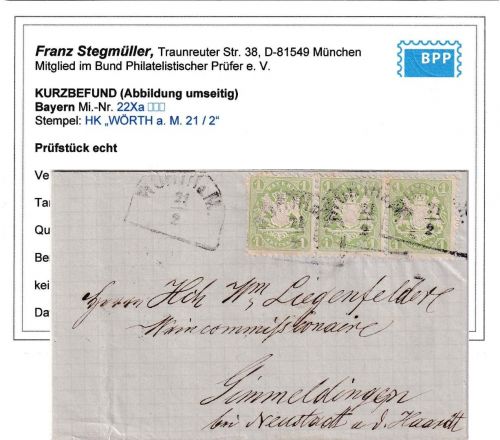 Franz Stegmüller, Traunreuter Str. 38, D-81549 München
Mitglied im Bund Philatelistischer Prüfer e. V.
BPP
KURZBEFUND (Abbildung umseitig)
Bayern Mi.-Nr. 22Xa □□□
Stempel: HK „WÖRTH a. M. 21 / 2“
Prüfstück echt
Ve
Ta
Qu
Be
kei
Da
WÖRTH a. M.
21
2
1 1 1
21 21
2 2
1 1 1 1 1 1
Herrn Hch Wm Liegenfelder
Weincommissionaire
Gimmeldingen
bei Neustadt a. d. Haardt